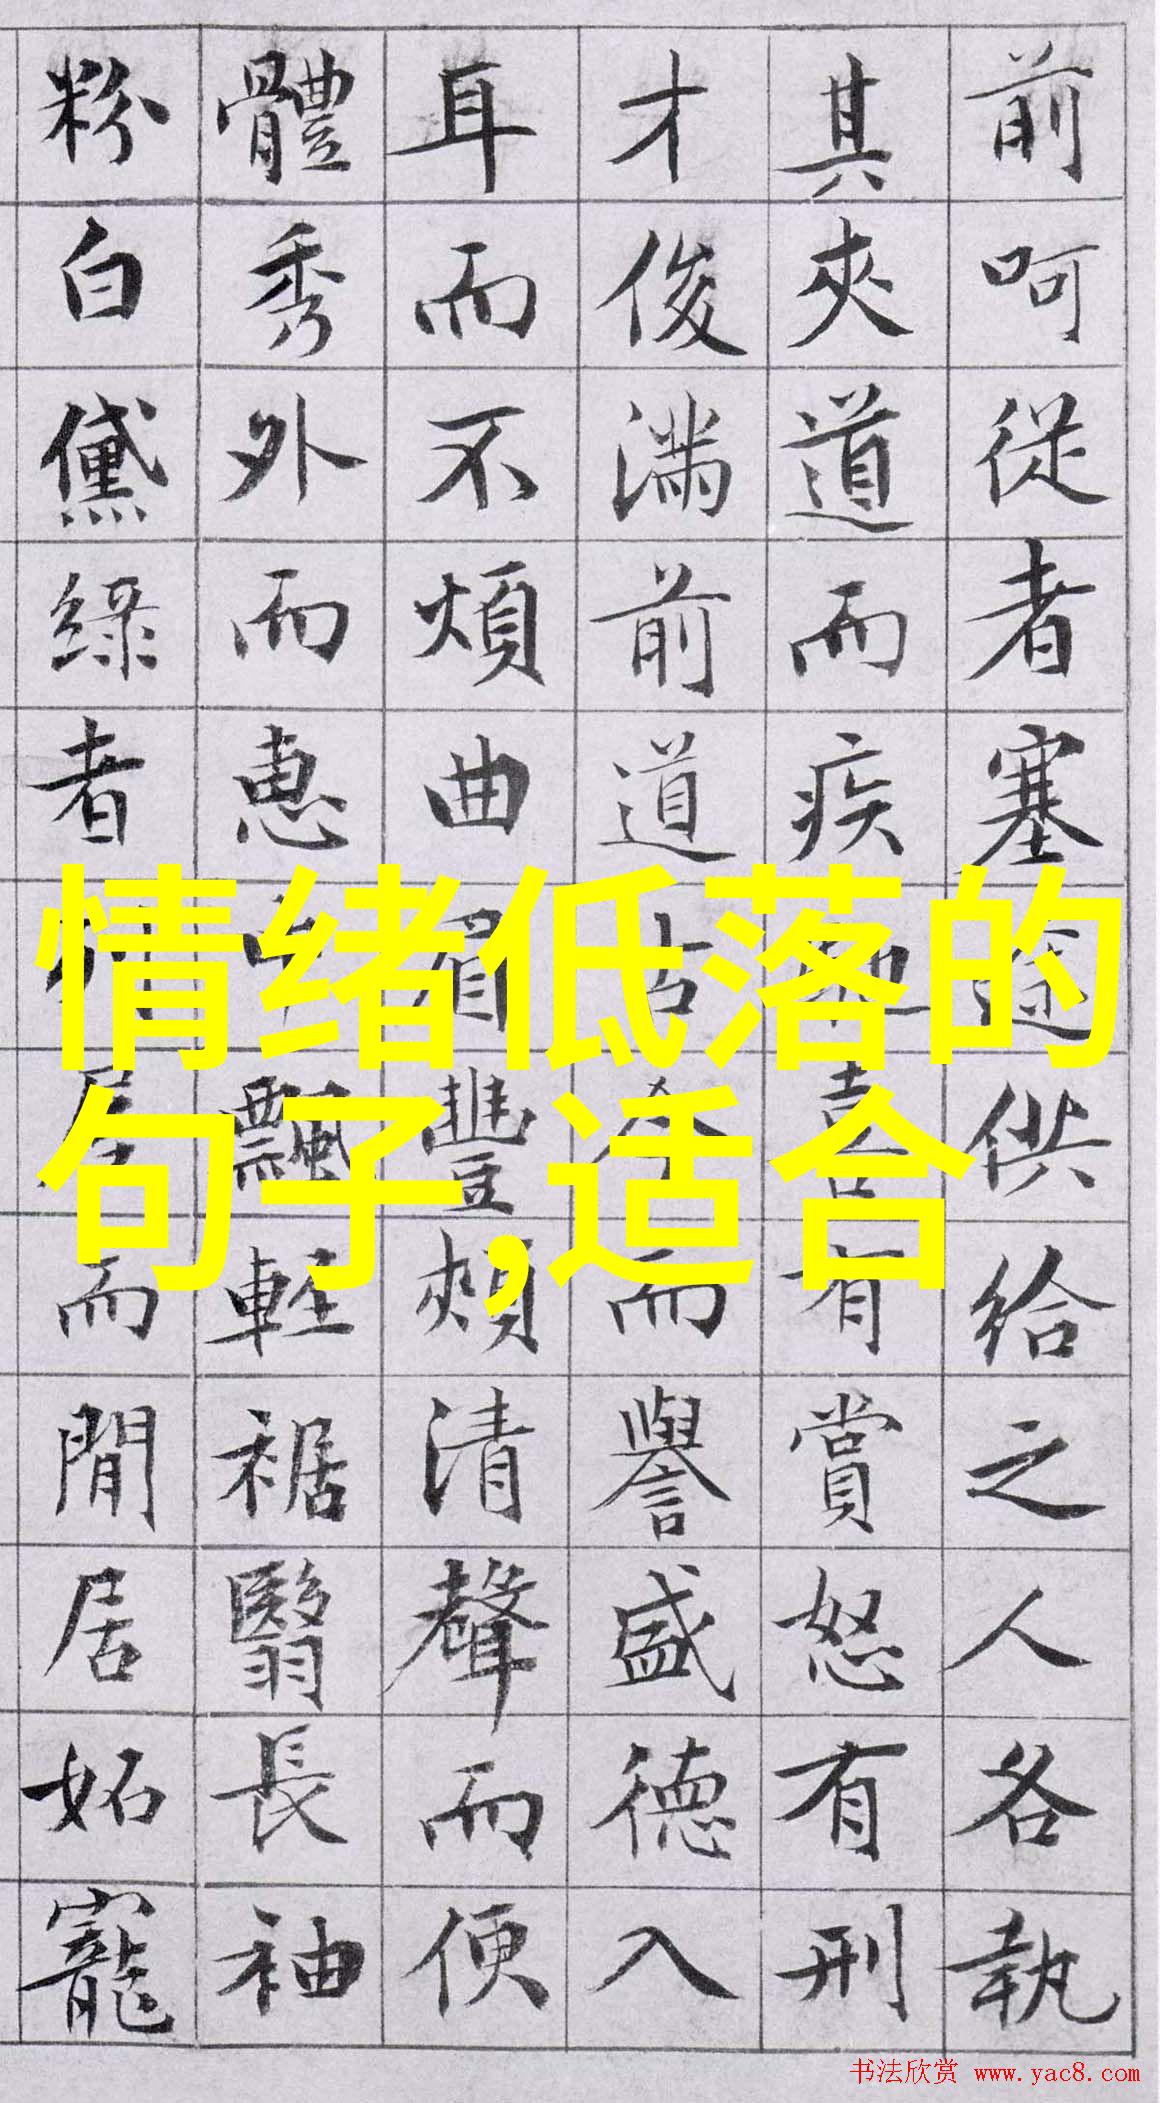 前呵從者塞途供給之人各執
其夾道而疾馳喜有賞怒有刑
才俊滿前道古今而譽盛德入
耳而不煩曲眉豐頰清聲而便
體秀外而惠中飄輕裾翳長袖
粉白黛綠者列屋而閒居妬寵
情绪低落的
句子,适合
书法欣赏 www.yac8.com